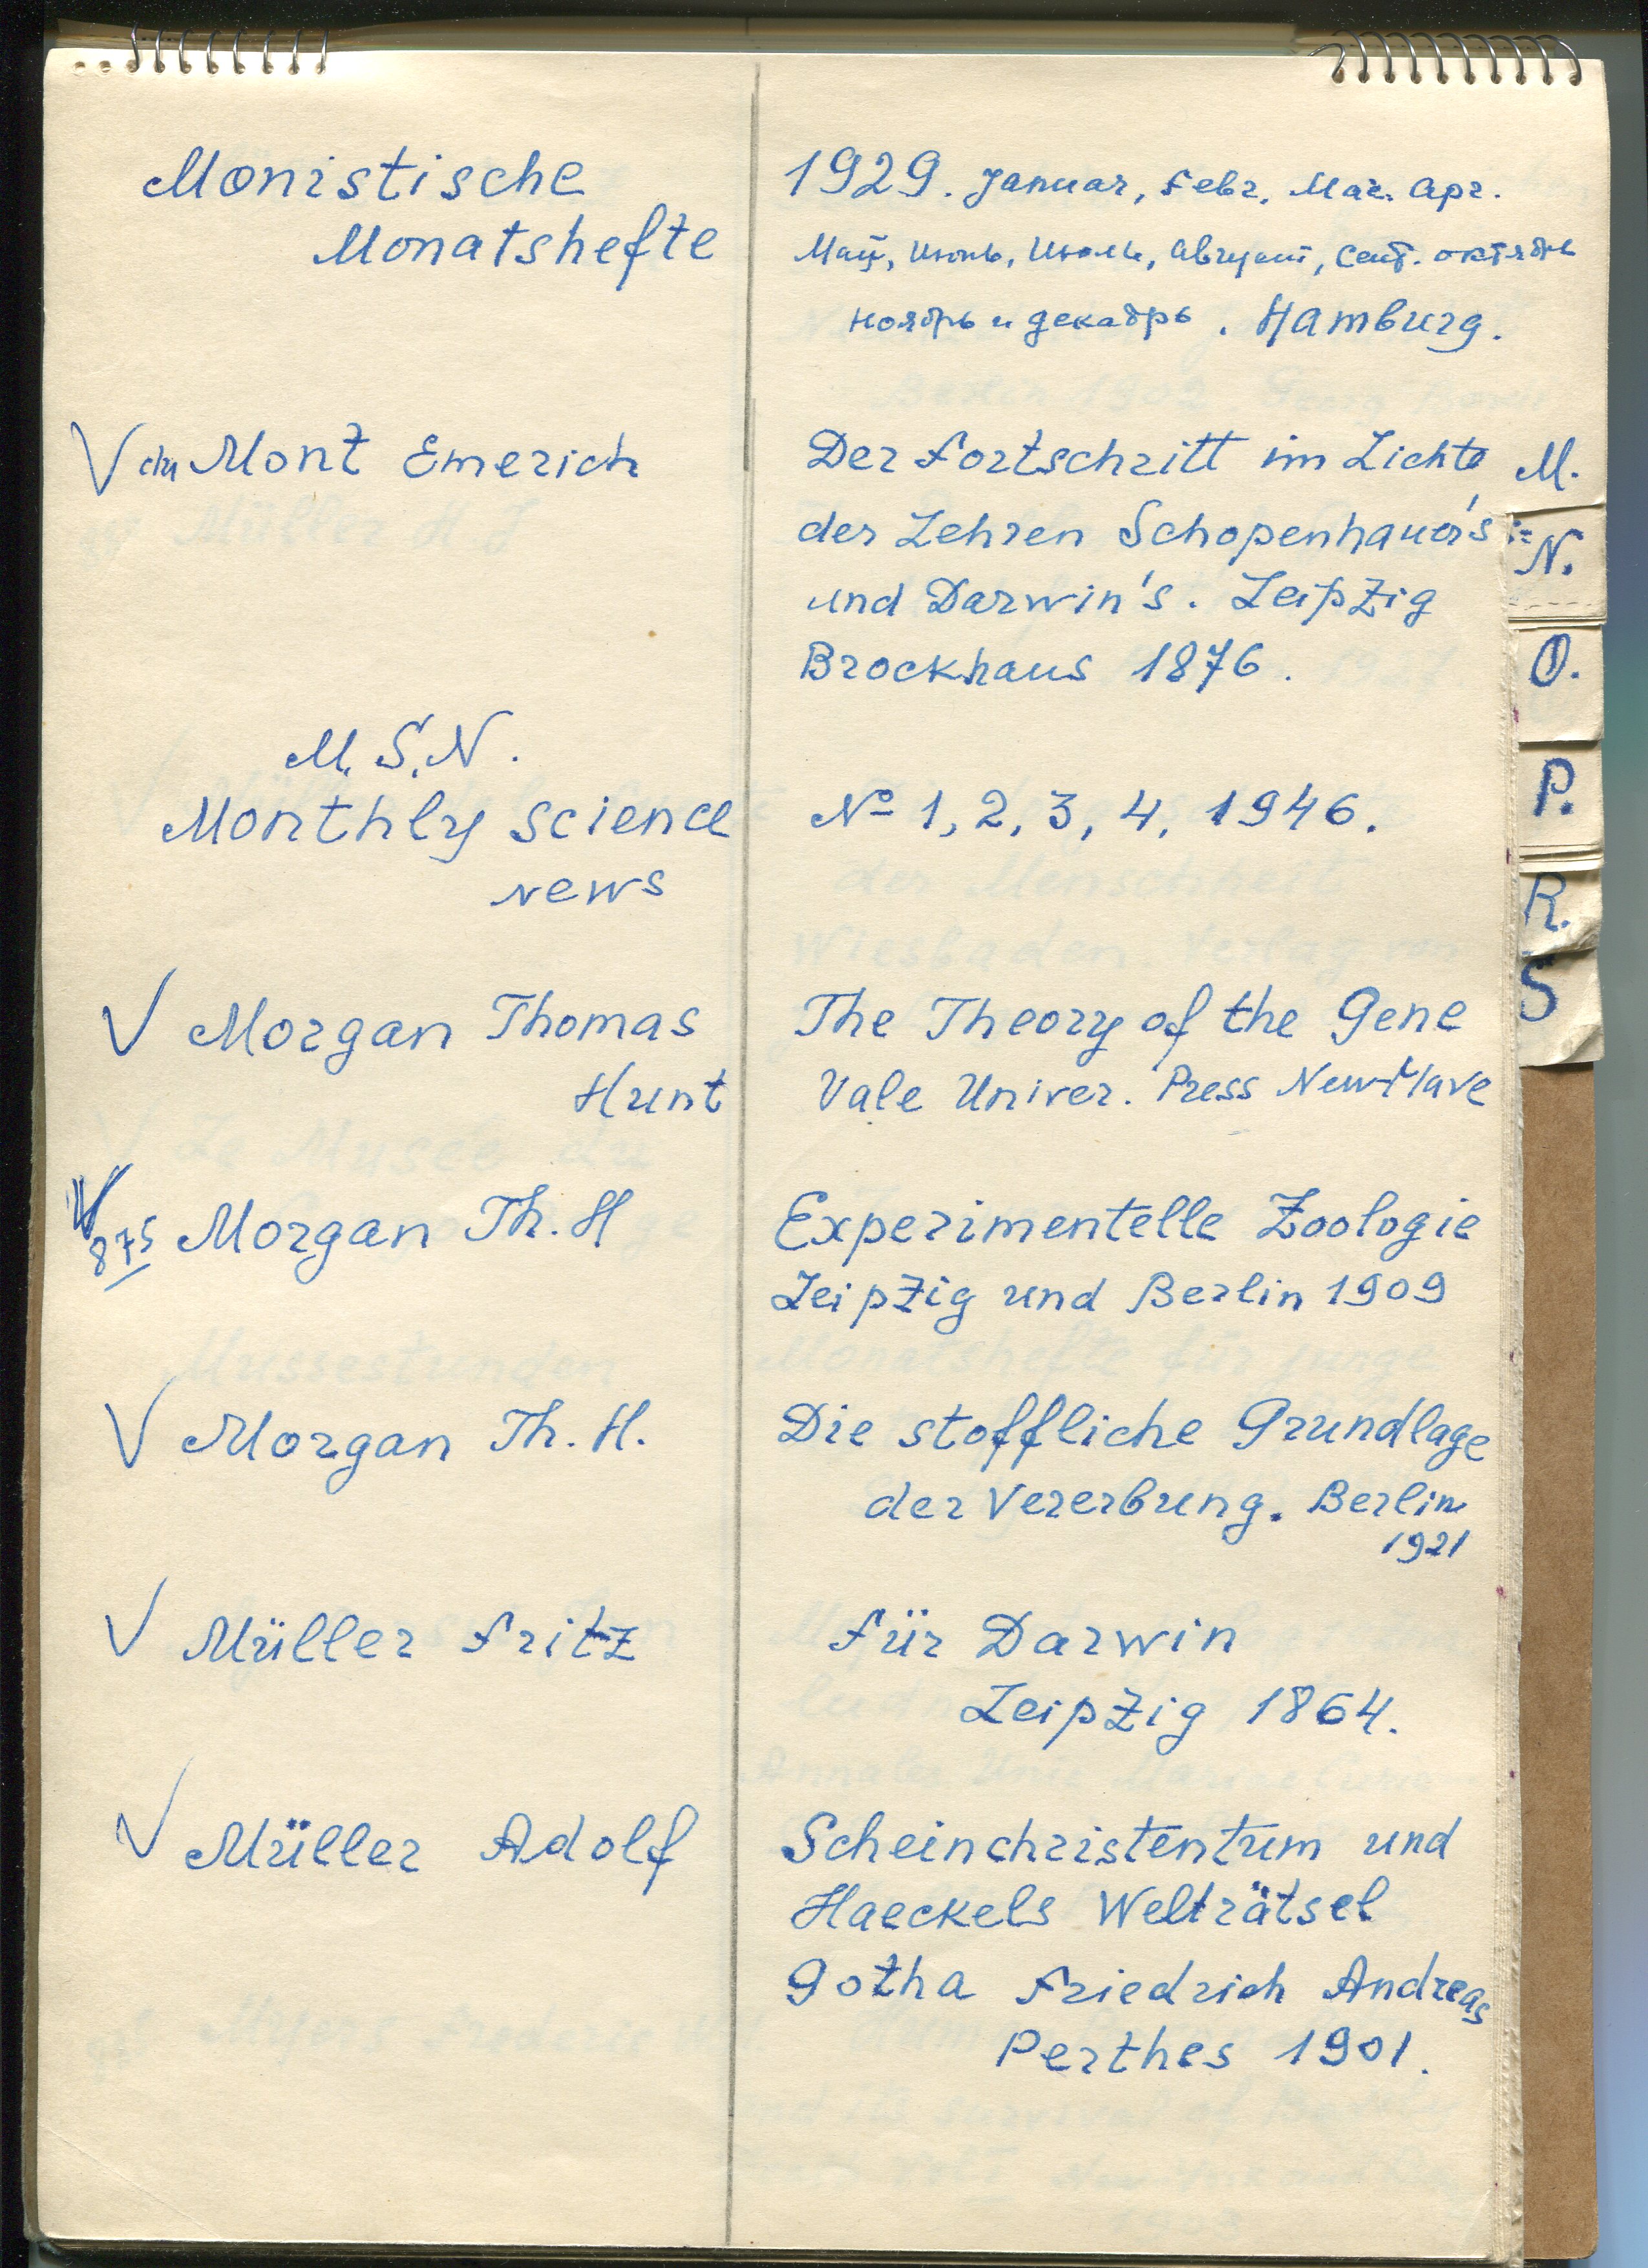 Monistische
Monatshefte
1929. Januar, Febr. Mar. Apr.
Май, Июнь, Июль, Август, Сент. октябрь
ноябрь и декабрь. Hamburg.
V du Mont Emerich
Der Fortschritt im Lichte
der Lehren Schopenhauer's
und Darwin's. Leipzig
Brockhaus 1876.
M. S. N.
Monthly science
news
№ 1, 2, 3, 4, 1946.
V Morgan Thomas
Hunt
The Theory of the Gene
Yale Univer. Press New-Have
V 875 Morgan Th. H
Experimentelle Zoologie
Leipzig und Berlin 1909
V Morgan Th. H.
Die stoffliche Grundlage
der Vererbung. Berlin
1921
V Müller Fritz
Für Darwin
Leipzig 1864.
V Müller Adolf
Scheinchristentum und
Haeckels Welträtsel
Gotha Friedrich Andreas
Perthes 1901.
M.
N.
O.
P.
R.
S